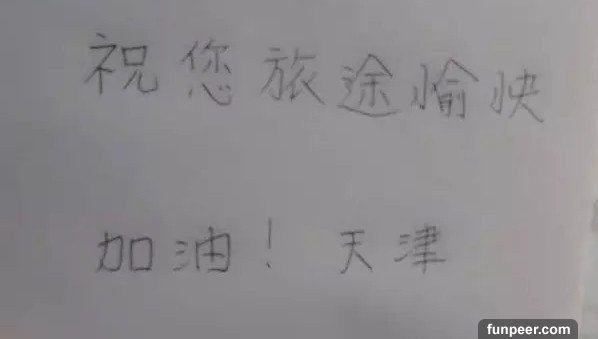 祝您旅途愉快
加油！天津
funpeer.com